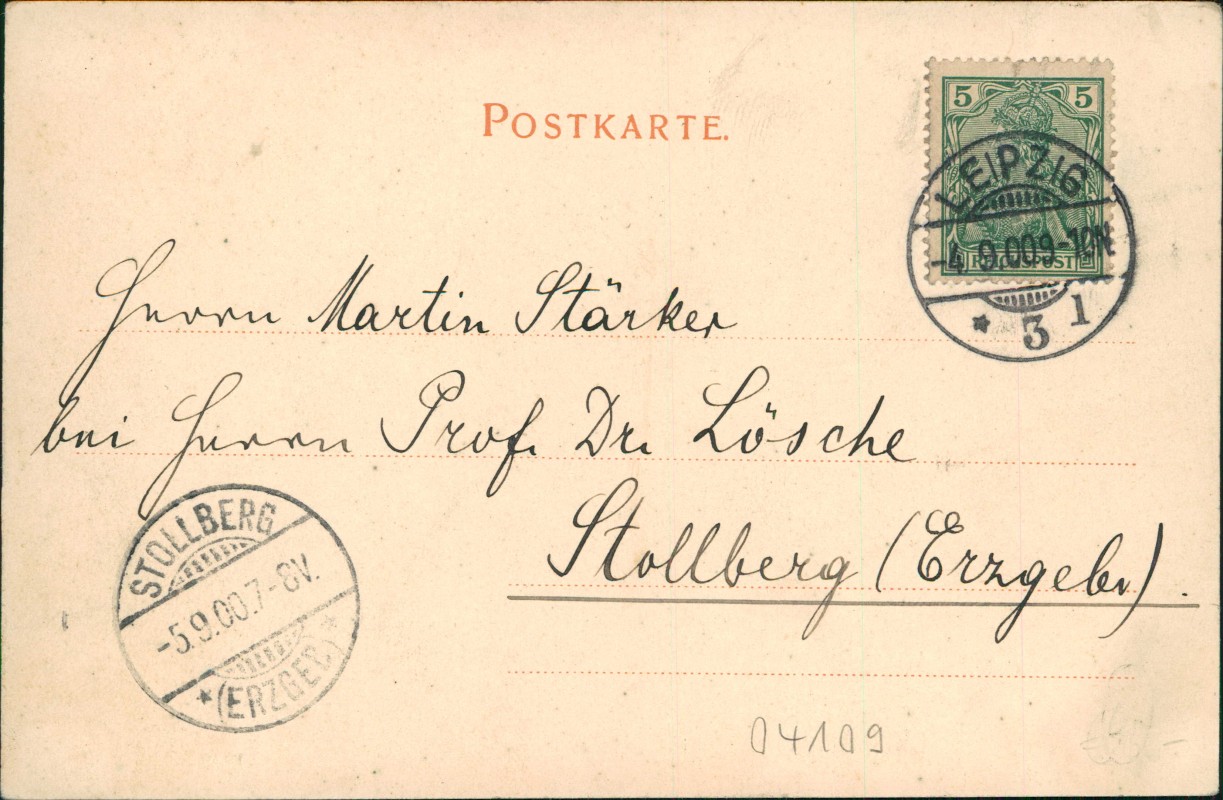 POSTKARTE.
5 5
REICHSPOST
LEIPZIG
-4.9.00 9-10N
* 3 1
Herrn Martin Stärker
bei Herrn Prof. Dr. Lösche
Stollberg (Erzgeb.)
STOLLBERG
-5.9.00.7-8V.
*(ERZGEB.)*
04109